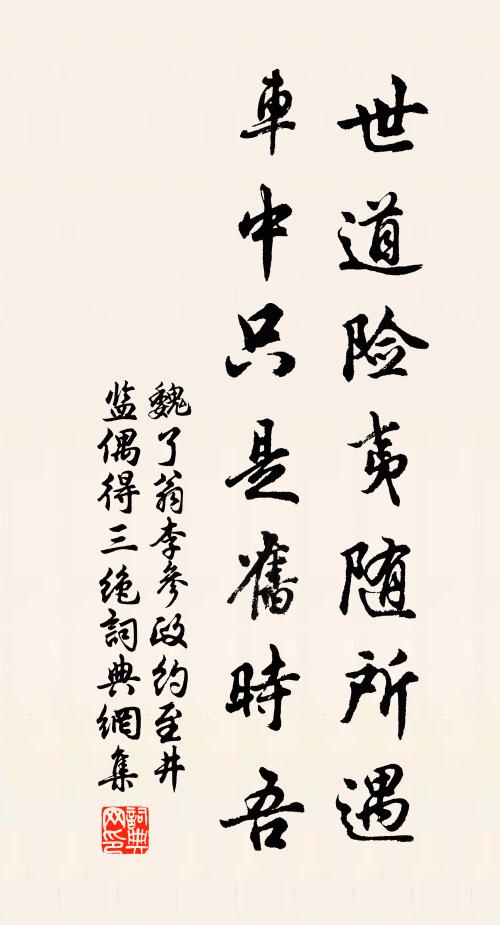 世道险夷随所遇
車中只是舊時吾
魏了翁李參政约至井
监偶得三绝詞典網集
詞典
网印